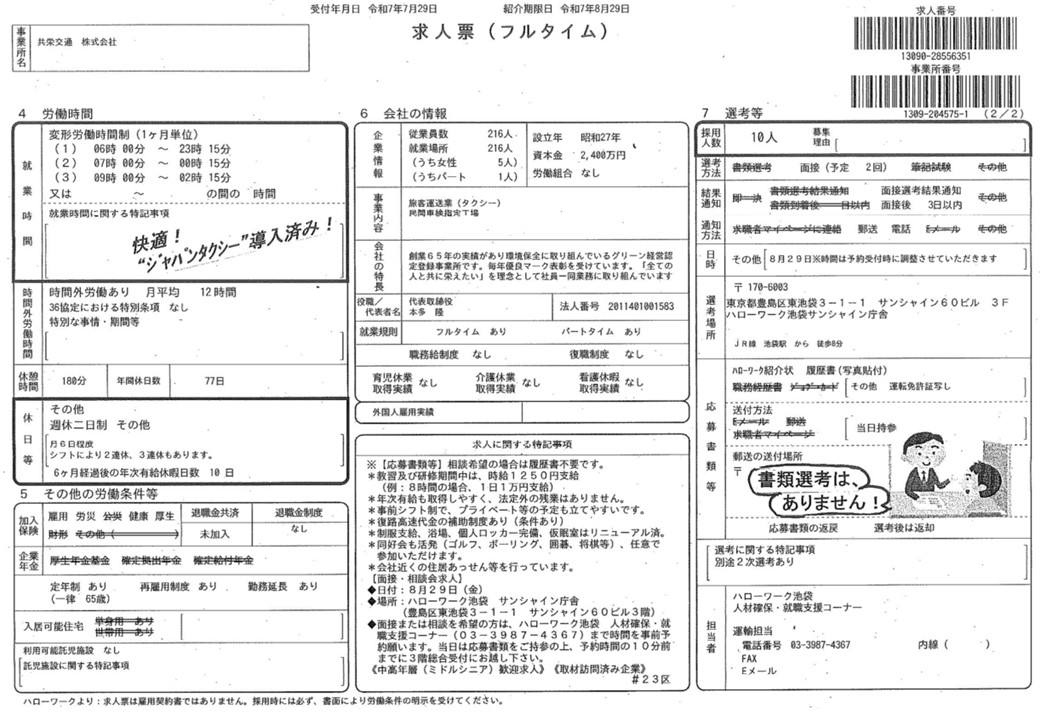 受付年月日 令和7年7月29日 紹介期限日 令和7年8月29日
求人票（フルタイム）
求人番号
13090-28556351
事業所番号
1309-204575-1 (2／2)
事業所名
共栄交通 株式会社
4 労働時間
就業時間
変形労働時間制（1ヶ月単位）
（1） 06時 00分 ～ 23時 15分
（2） 07時 00分 ～ 00時 15分
（3） 09時 00分 ～ 02時 15分
又は ～ の間の 時間
就業時間に関する特記事項
快適！
“ジャパンタクシー”導入済み！
時間外労働時間
時間外労働あり 月平均 12時間
36協定における特別条項 なし
特別な事情・期間等
休憩時間
180分
年間休日数
77日
休日等
その他
週休二日制 その他
月6日程度
シフトにより2連休、3連休もあります。
6ヶ月経過後の年次有給休暇日数 10 日
5 その他の労働条件等
加入保険
雇用 労災 公災 健康 厚生
財形 その他（ ）
退職金共済
未加入
退職金制度
なし
企業年金
厚生年金基金 確定拠出年金 確定給付年金
定年制 あり 再雇用制度 あり 勤務延長 あり
（一律 65歳）
入居可能住宅
単身用 あり
世帯用 あり
利用可能託児施設 なし
託児施設に関する特記事項
6 会社の情報
企業情報
従業員数 216人
就業場所 216人
（うち女性 5人）
（うちパート 1人）
設立年 昭和27年
資本金 2,400万円
労働組合 なし
事業内容
旅客運送業（タクシー）
民間車検指定工場
会社の特長
創業65年の実績があり環境保全に取り組んでいるグリーン経営認
定登録事業所です。毎年優良マーク表彰を受けています。「全ての
人と共に栄えたい」を理念として社員一同業務に取り組んでいます
役職／代表者名
代表取締役
本多 隆
法人番号 2011401001583
就業規則
フルタイム あり パートタイム あり
職務給制度 なし 復職制度 なし
育児休業取得実績 なし 介護休業取得実績 なし 看護休暇取得実績 なし
外国人雇用実績
求人に関する特記事項
※【応募書類等】相談希望の場合は履歴書不要です。
＊教習及び研修期間中は、時給1250円支給
（例：8時間の場合、1日1万円支給）
＊年次有給も取得しやすく、法定外の残業はありません。
＊事前シフト制で、プライベート等の予定も立てやすいです。
＊復路高速代金の補助制度あり（条件あり）
＊制服支給、浴場、個人ロッカー完備、仮眠室はリニューアル済。
＊同好会も活発（ゴルフ、ボーリング、囲碁、将棋等）、任意で
参加いただけます。
＊会社近くの住居あっせん等を行っています。
【面接・相談会求人】
◆日付：8月29日（金）
◆場所：ハローワーク池袋 サンシャイン庁舎
（豊島区東池袋3－1－1 サンシャイン60ビル3階）
◆面接または相談を希望の方は、ハローワーク池袋 人材確保・就
職支援コーナー（03－3987－4367）まで時間を事前予
約願います。当日は応募書類をご持参の上、予約時間の10分前
までに3階総合受付にお越し下さい。
《中高年層（ミドルシニア）歓迎求人》《取材訪問済み企業》
＃23区
7 選考等
採用人数
10人
募集理由
選考方法
書類選考 面接（予定 2回） 筆記試験 その他
結果通知
即 決
書類選考結果通知
書類到着後 日以内
面接選考結果通知
面接後 3日以内
その他
通知方法
求職者マイページに連絡 郵送 電話 Eメール その他
日時
その他
8月29日※時間は予約受付時に調整させていただきます
選考場所
〒 170-6003
東京都豊島区東池袋3－1－1 サンシャイン60ビル 3F
ハローワーク池袋サンシャイン庁舎
JR線 池袋駅 から 徒歩8分
応募書類等
ハローワーク紹介状 履歴書（写真貼付）
職務経歴書 ジョブ・カード その他 運転免許証写し
送付方法
Eメール 郵送
求職者マイページ
当日持参
郵送の送付場所
〒
書類選考は、
ありません！
応募書類の返戻 選考後は返却
選考に関する特記事項
別途2次選考あり
担当者
ハローワーク池袋
人材確保・就職支援コーナー
運輸担当
電話番号 03-3987-4367 内線（ ）
FAX
Eメール
ハローワークより：求人票は雇用契約書ではありません。採用時には必ず、書面により労働条件の明示を受けてください。